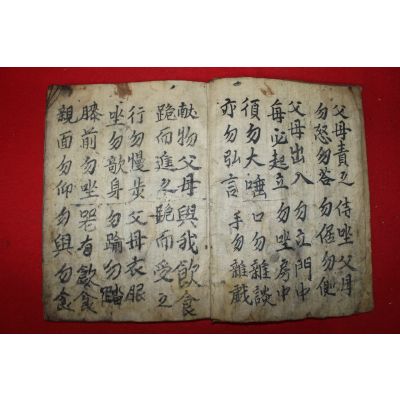 父母責之 侍坐父母
勿怒勿答 勿偃勿側
父母出入 勿立門中
每必起立 勿坐房中
須勿大唾 口勿雜談
亦勿弘言 手勿雜戲
献物父母與我飮食
跪而進之跪而受之
行勿慢步父母衣服
坐勿欹身勿踰勿踏
膝前勿坐器有飮食
親面勿仰勿與勿食